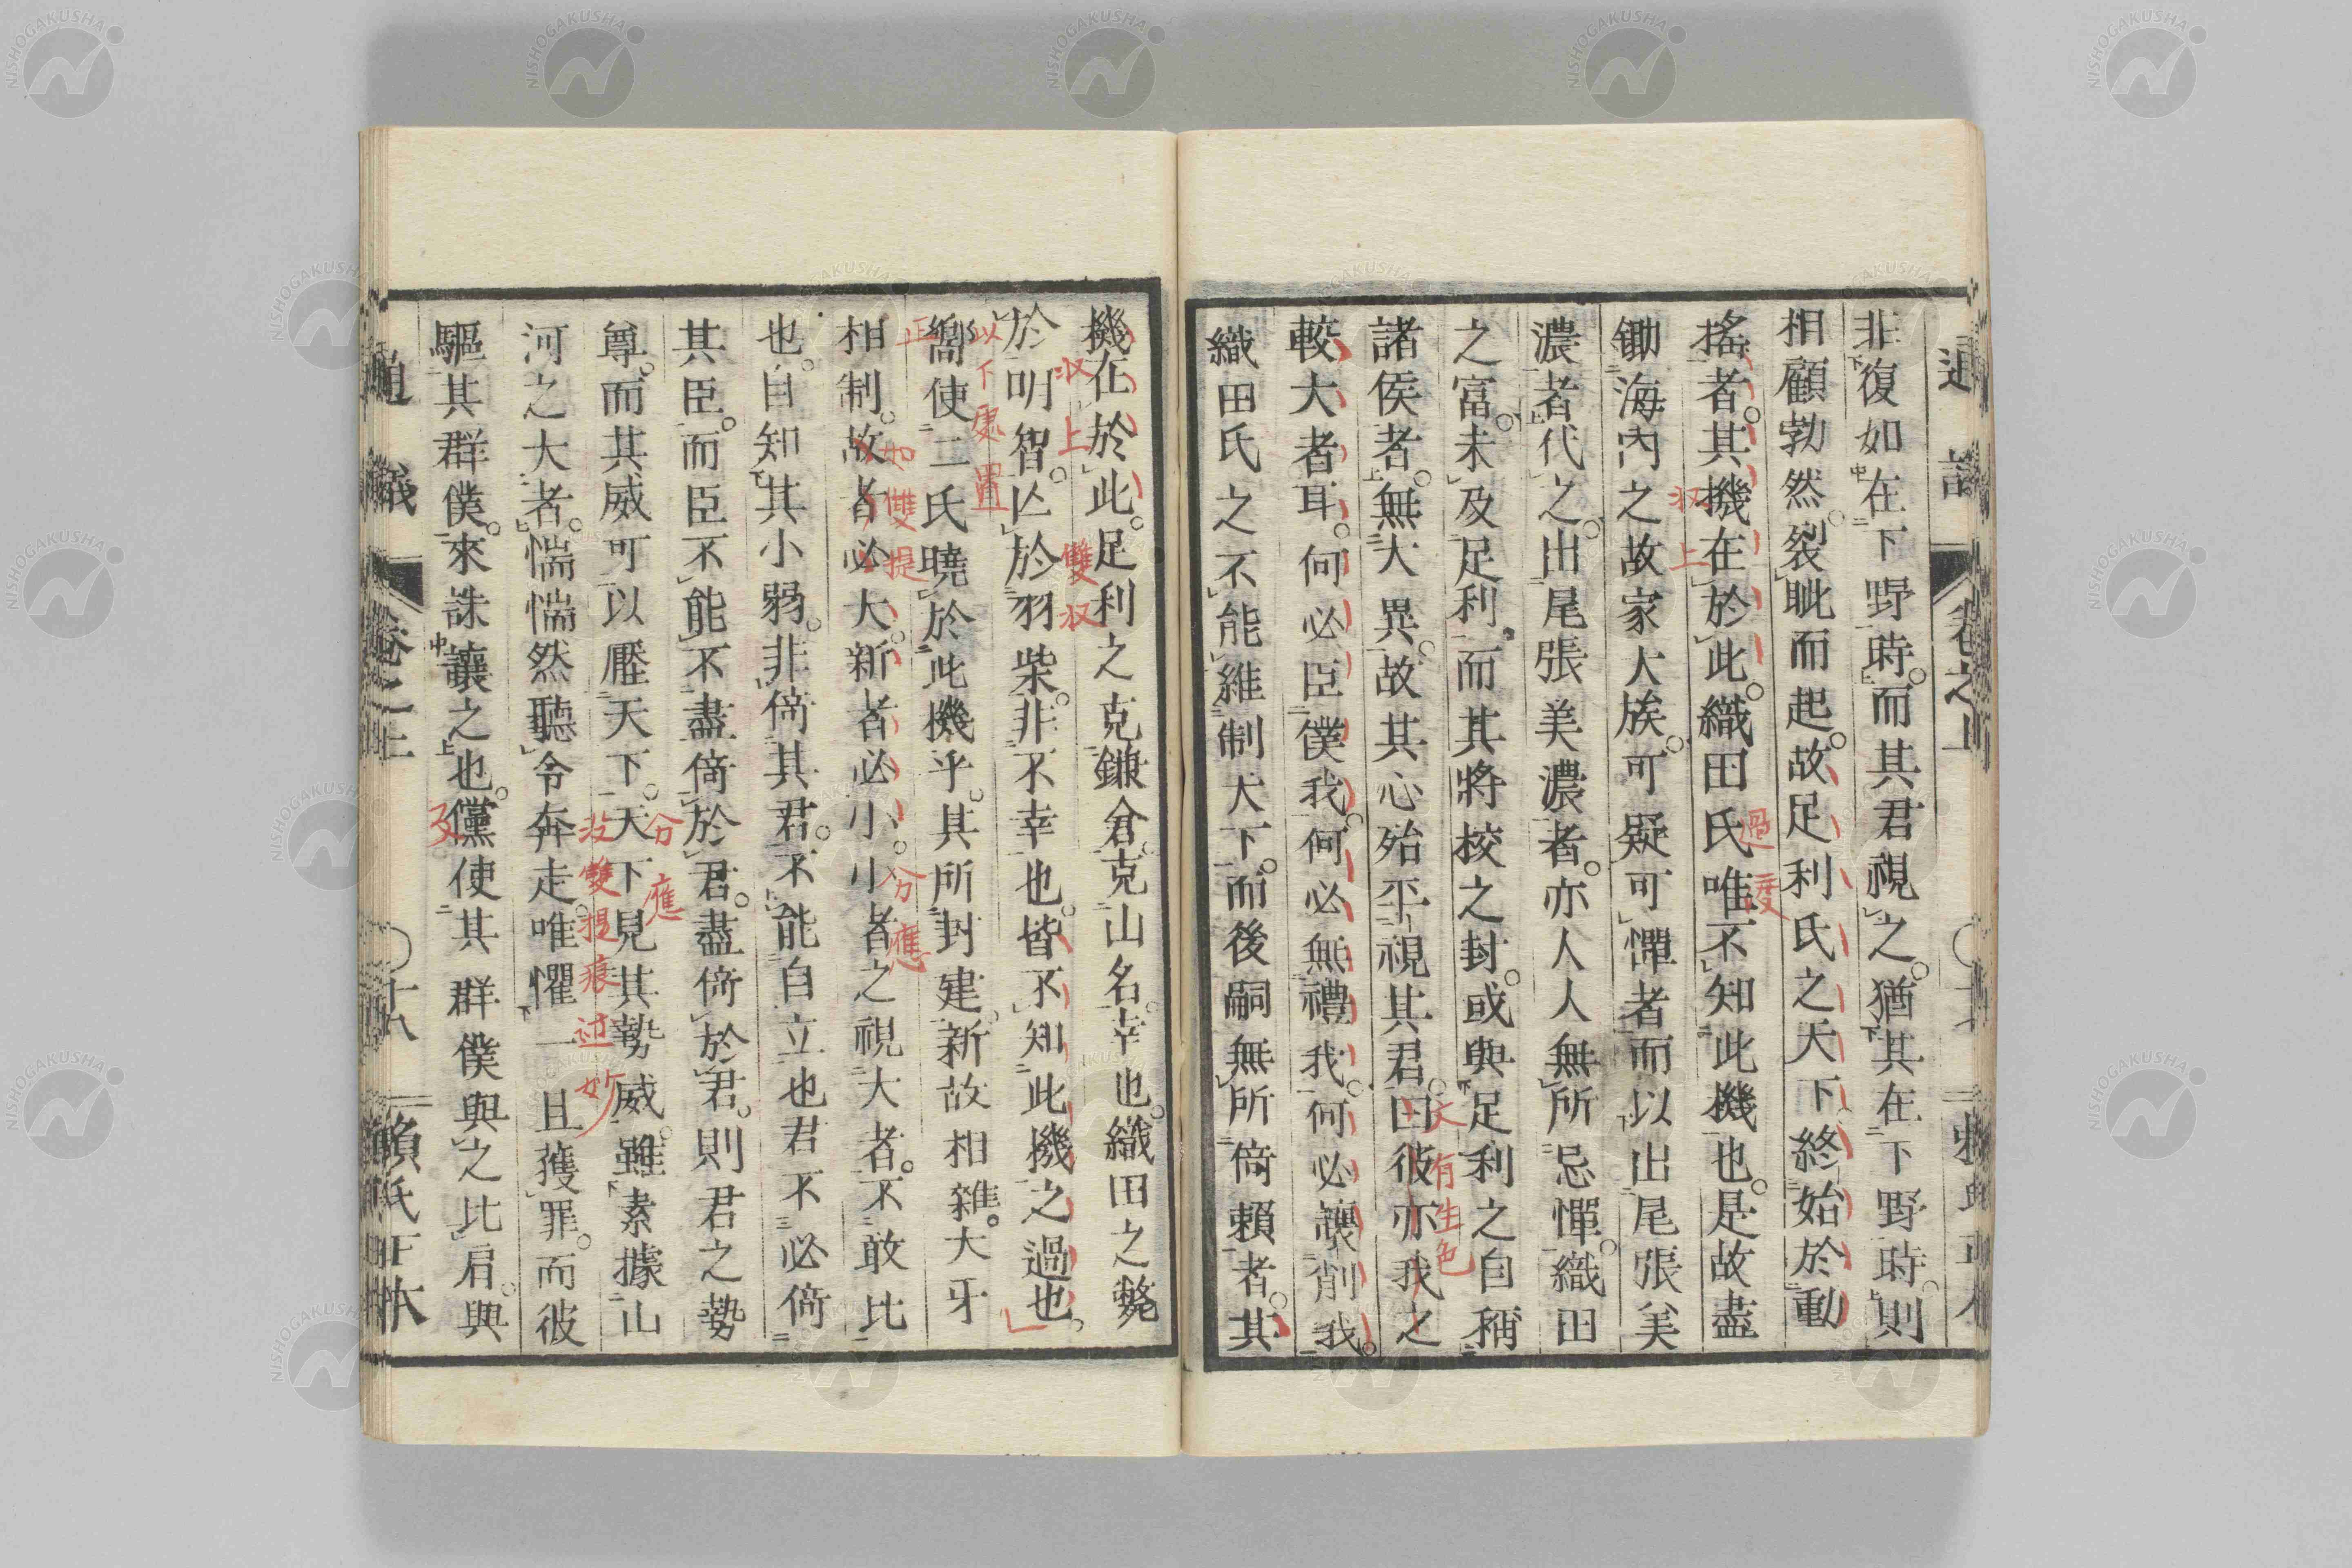 非復如在下野時。而其君視之。猶其在下野時。則
相顧勃然。裂眦而起。故足利氏之天下。終始於動
搖者。其機在於此。織田氏唯不知此機也。是故盡
鋤海內之故家大族。可疑可憚者。而以出尾張美
濃者代之。出尾張美濃者。亦人人無所忌憚。織田
之富。未及足利。而其將校之封。或與足利之自稱
諸侯者。無大異。故其心殆平視其君。曰彼亦我之
較大者耳。何必臣僕我。何必無禮我。何必讓削我。
織田氏之不能維制天下。而後嗣無所倚賴者。其
收上
過度
文有生色
機在於此。足利之克鎌倉克山名。幸也。織田之斃
於明智。亡於羽柴。非不幸也。皆不知此機之過也。
嚮使二氏曉於此機乎。其所封建。新故相雜。大牙
相制。故者必大。新者必小。小者之視大者。不敢比
也。自知其小弱。非倚其君。不能自立也。君不必倚
其臣。而臣不能不盡倚於君。盡倚於君。則君之勢
尊。而其威可以壓天下。天下見其勢威。雖素據山
河之大者。惴惴然聽令奔走。唯懼一旦獲罪。而彼
驅其群僕。來誅讓之也。儻使其群僕與之比肩。與
收上
雙收
以下處置
正
如雙提
分應
分應
沒雙提痕迹妙
反
通議 卷之上 ○十八 賴氏正本